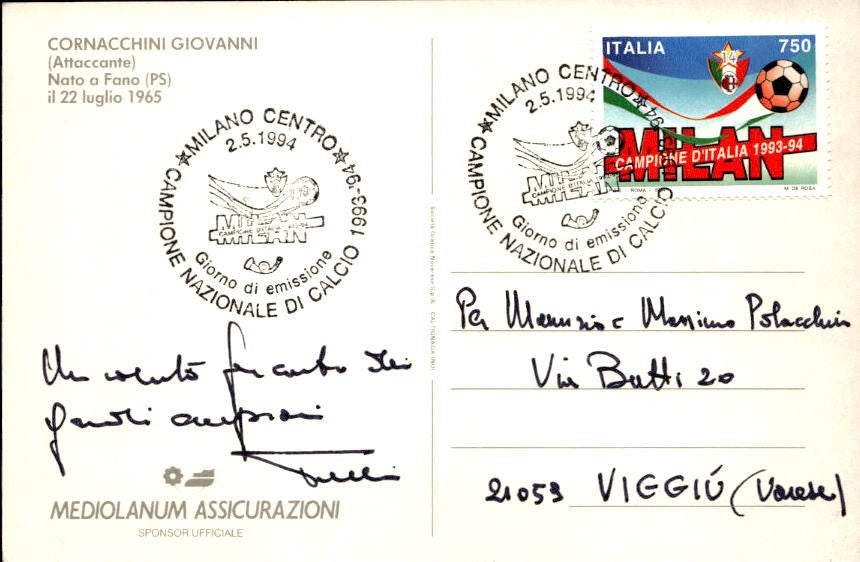 CORNACCHINI GIOVANNI
(Attaccante)
Nato a Fano (PS)
il 22 luglio 1965
★MILANO CENTRO★
2.5.1994
MILAN
CAMPIONE D'ITALIA 1993-94
Giorno di emissione
CAMPIONE NAZIONALE DI CALCIO 1993-94
ITALIA 750
14
MILAN
CAMPIONE D'ITALIA 1993-94
ROMA
M. DE ROSA
★MILANO CENTRO★
2.5.1994
MILAN
CAMPIONE D'ITALIA
Giorno di emissione
CAMPIONE NAZIONALE DI CALCIO 94
Società Grafica Novarese S.p.A.
Un saluto dei
grandi campioni
Per Maurizio e Massimo Polacchini
Via Butti 20
21059 VIGGIÚ (Varese)
MEDIOLANUM ASSICURAZIONI
SPONSOR UFFICIALE